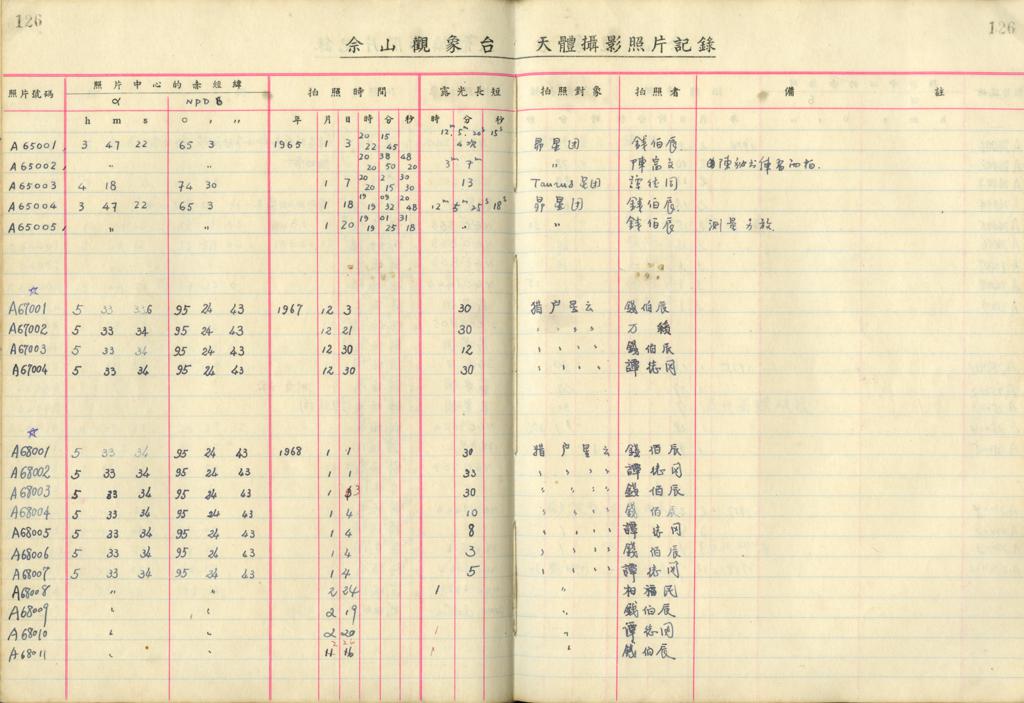 126 126
佘山觀象台 天體攝影照片記錄
照片號碼 照片中心的赤經緯 拍照時間 露光長短 拍照對象 拍照者 備 註
α NPD
h m s ° ′ ″ 年 月 日 時 分 秒 時 分 秒
20 15 12ᵐ 5ᵐ 20ˢ 15ˢ
A65001, 3 47 22 65 3 1965 1 3 22 45 4次 昴星团 錢伯辰
20 38 48
A65002, 〃 〃 20 50 20 3ᵐ 7ᵐ 〃 陳富文
20 2 30
A65003 4 18 74 30 1 7 20 15 30 13 Taurus星团 譚德同
19 09 20
A65004 3 47 22 65 3 1 18 19 32 48 12ᵐ 5ᵐ 25ˢ 18ˢ 昴星团 錢伯辰
19 01 31
A65005, 〃 〃 1 20 19 25 18 〃 〃 錢伯辰 測量
☆
A67001 5 33 95 24 43 1967 12 3 30 猎户星云 錢伯辰
A67002 5 33 34 95 24 43 12 21 30 〃 〃 〃 〃 万
A67003 5 33 34 95 24 43 12 30 12 〃 〃 〃 〃 錢伯辰
A67004 5 33 34 95 24 43 12 30 30 〃 〃 〃 〃 譚德同
☆
A68001 5 33 34 95 24 43 1968 1 1 30 猎户星云 錢伯辰
A68002 5 33 34 95 24 43 1 1 33 〃 〃 〃 〃 譚德同
A68003 5 33 34 95 24 43 1 3 30 〃 〃 〃 〃 錢伯辰
A68004 5 33 34 95 24 43 1 4 10 〃 〃 〃 〃 錢伯辰
A68005 5 33 34 95 24 43 1 4 8 〃 〃 〃 〃 譚德同
A68006 5 33 34 95 24 43 1 4 3 〃 〃 〃 〃 錢伯辰
A68007 5 33 34 95 24 43 1 4 5 〃 〃 〃 〃 譚德同
A68008 〃 〃 2 24 1 〃 福民
A68009 〃 〃 2 19 〃 錢伯辰
A68010 〃 〃 2 20 1 〃 譚德同
A68011 〃 〃 11 16 1 〃 錢伯辰